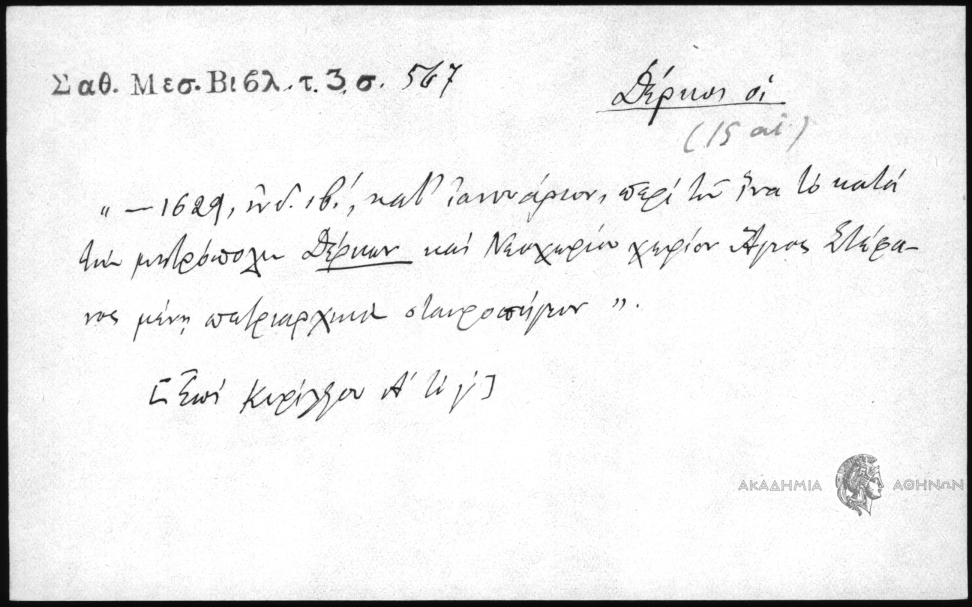 Σαθ. Μεσ. Βιβλ. τ. 3, σ. 567
Δέρκων οἱ
(15 αἰ.)
"— 1629, ἰνδ. ιβ´, κατ' Ἰαννουάριον, περὶ τοῦ ἵνα τὸ κατὰ
τὴν μητρόπολιν Δέρκων καὶ Νεοχωρίου χωρίον Ἅγιος Στέφα-
νος μένῃ πατριαρχικὸν σταυροπήγιον".
[Ἐπὶ Κυρίλλου Α´ τὸ γ´]
ΑΚΑΔΗΜΙΑ ΑΘΗΝΩΝ